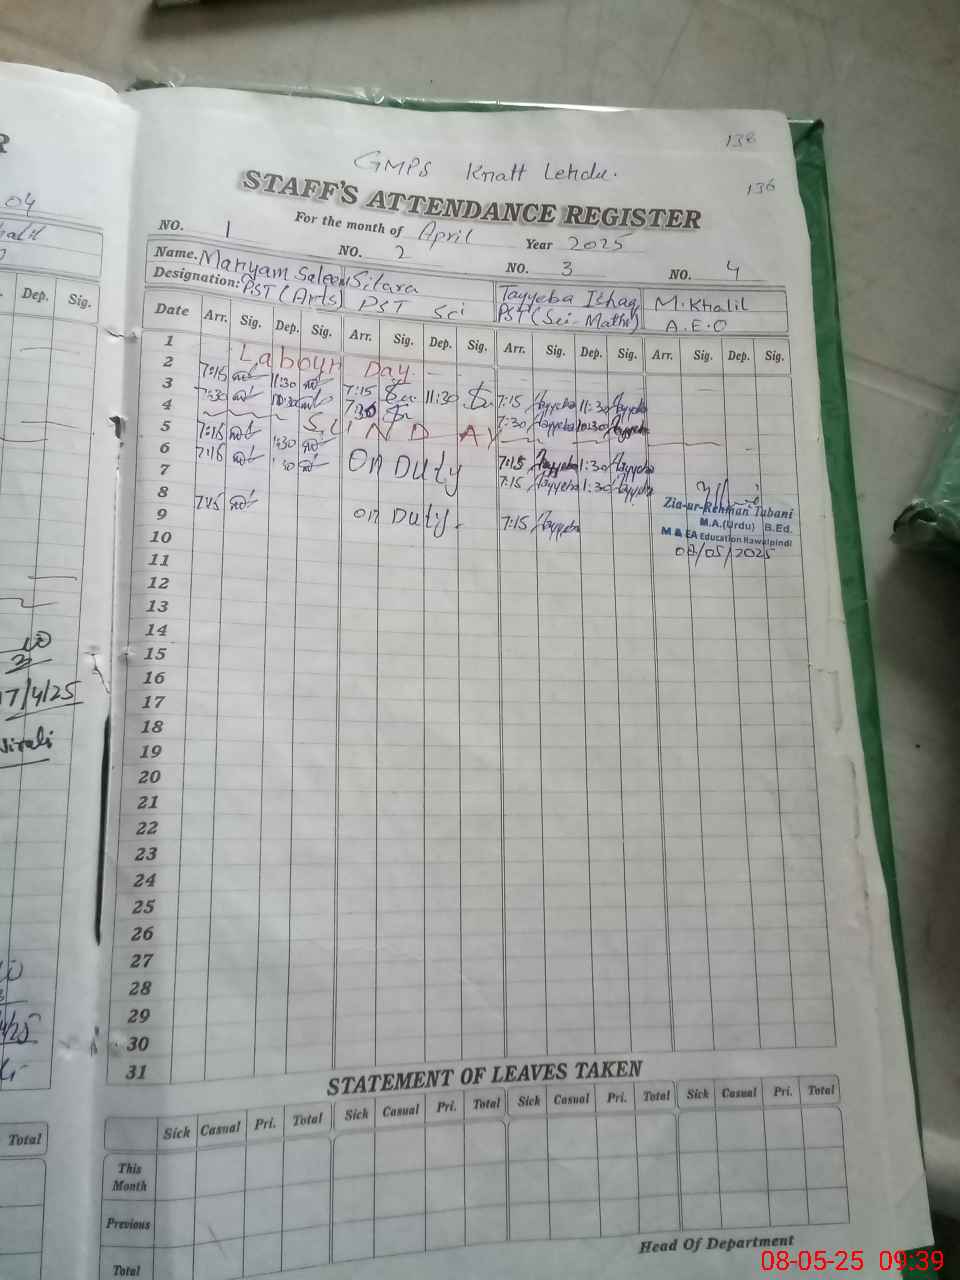 138
136
GMPS Khatt Lehdu.
STAFF'S ATTENDANCE REGISTER
For the month of April Year 2025
NO. 1 NO. 2 NO. 3 NO. 4
Name. Mariyam Saleem Sitara Tayyeba Ishaq M. Khalil
Designation: PST (Arts) PST Sci PST (Sci-Math) A.E.O
Date Arr. Sig. Dep. Sig. Arr. Sig. Dep. Sig. Arr. Sig. Dep. Sig. Arr. Sig. Dep. Sig.
1 Labour Day
2 7:15 11:30 7:15 11:30 7:15 Tayyeba 11:30 Tayyeba
3 7:30 10:30 7:30 7:30 Tayyeba 10:30 Tayyeba
4 SUNDAY
5 7:15 1:30 On Duty 7:15 Tayyeba 1:30 Tayyeba
6 7:15 1:30 7:15 Tayyeba 1:30 Tayyeba
7
8 7:15 on Duty. 7:15 Tayyeba
9
10
11
12
13
14
15
16
17
18
19
20
21
22
23
24
25
26
27
28
29
30
31
Zia-ur-Rehman Tabani
M.A.(Urdu) B.Ed.
M & EA Education Rawalpindi
08/05/2025
STATEMENT OF LEAVES TAKEN
Sick Casual Pri. Total Sick Casual Pri. Total Sick Casual Pri. Total Sick Casual Pri. Total
This Month
Previous
Total
Head Of Department
04
Dep. Sig.
17/4/25
Total
08-05-25 09:39